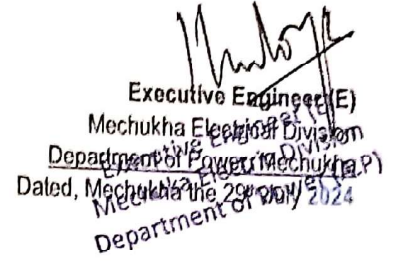 Executive Engineer (E)
Mechukha Electrical Division
Department of Power: Mechukha
Dated, Mechukha the 29th July 2024
Executive Engineer (E)
Mechukha Electrical Division
Department of Power (A.P)